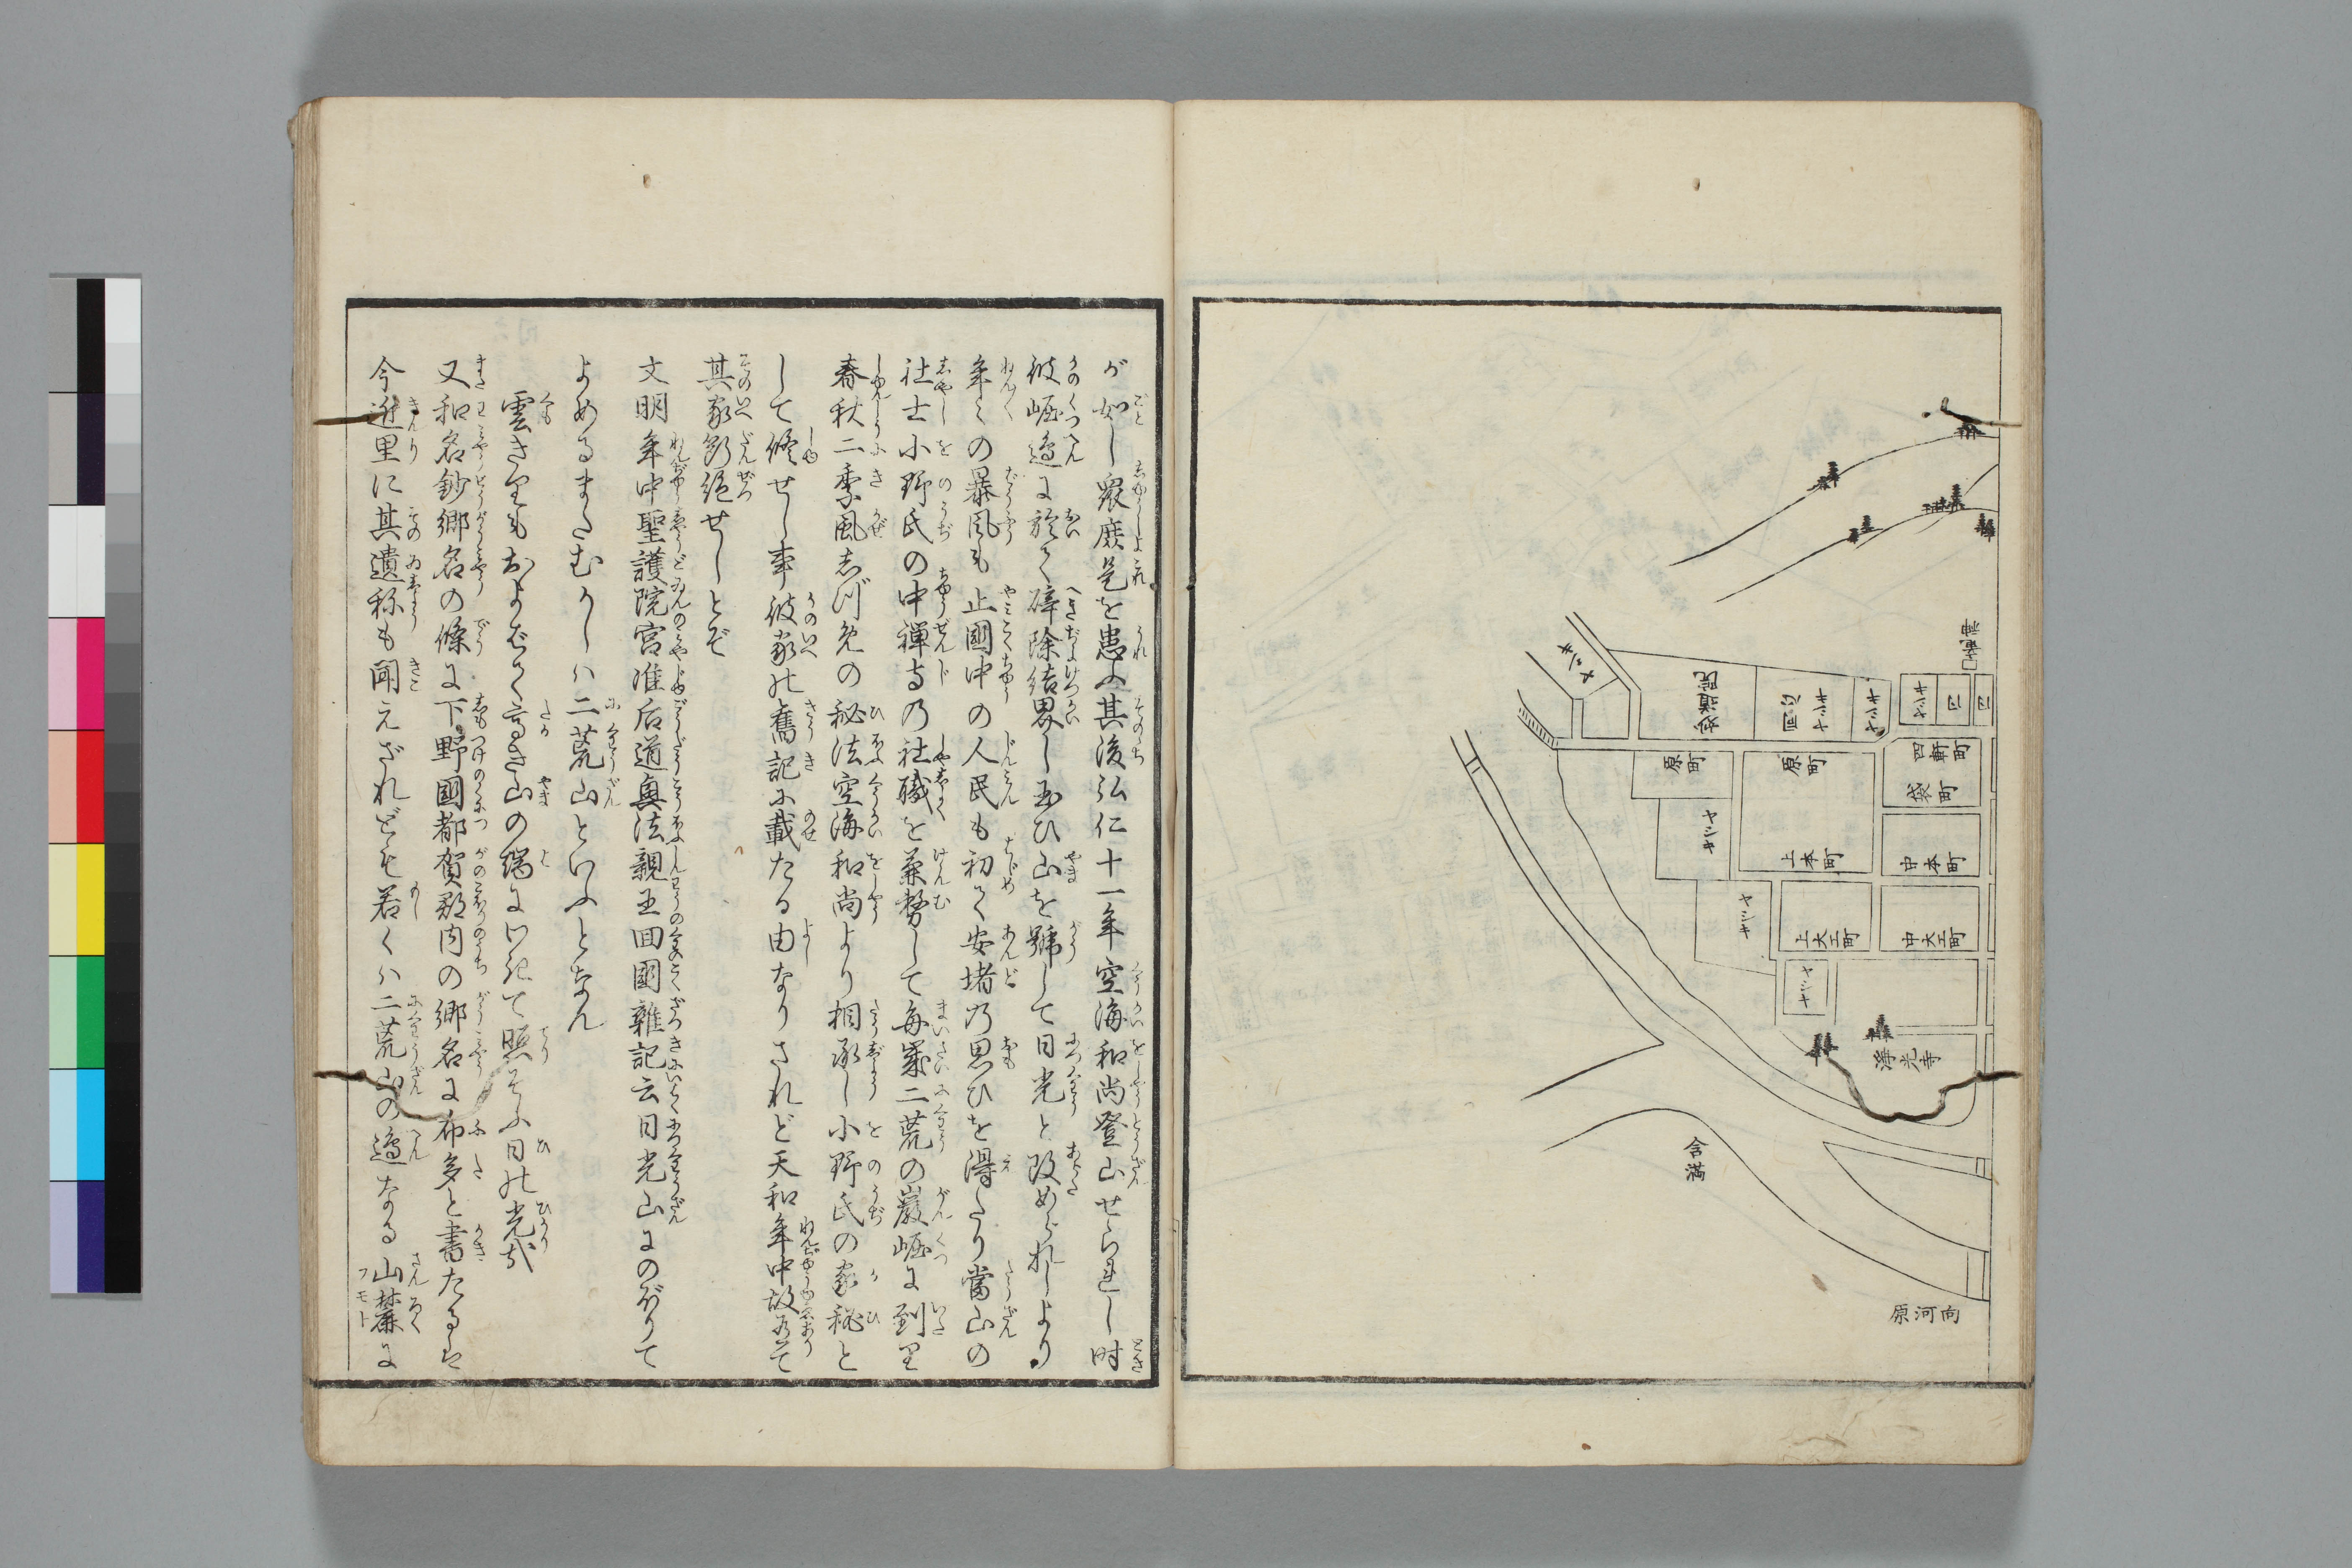 慈雲
ヤシキ
妙道院
ヤシキ
ヤシキ
ヤシキ
原町
原町
四軒町
袋町
ヤシキ
上本町
中本町
ヤシキ
上大工町
中大工町
ヤシキ
浄光寺
含満
向河原
が如し衆庶是を患ふ其後弘仁十一年空海和尚登山せられし時
彼崛邉に於て辟除結界し玉ひ山を號して日光と改められしより
年々の暴風も止國中の人民も初て安堵の思ひを得たり當山の
社士小野氏の中禅寺の社職を兼務して毎歳二荒の巌崛に到り
春秋二季風しづめの秘法空海和尚より相承し小野氏の家秘と
して修せし事彼家の舊記に載たる由なりされど天和年中故有て
其家断絶せしとぞ
文明年中聖護院宮准后道興法親王回國雜記云日光山にのぼりて
よめるまたむかしハ二荒山といふとなん
雲きりもおよばで高き山の端にわきて照そふ日の光哉
又和名鈔郷名の條に下野國都賀郡内の郷名に布多と書たるは
今近里に其遺称も聞えざれども若くハ二荒山の邉なる山麓に